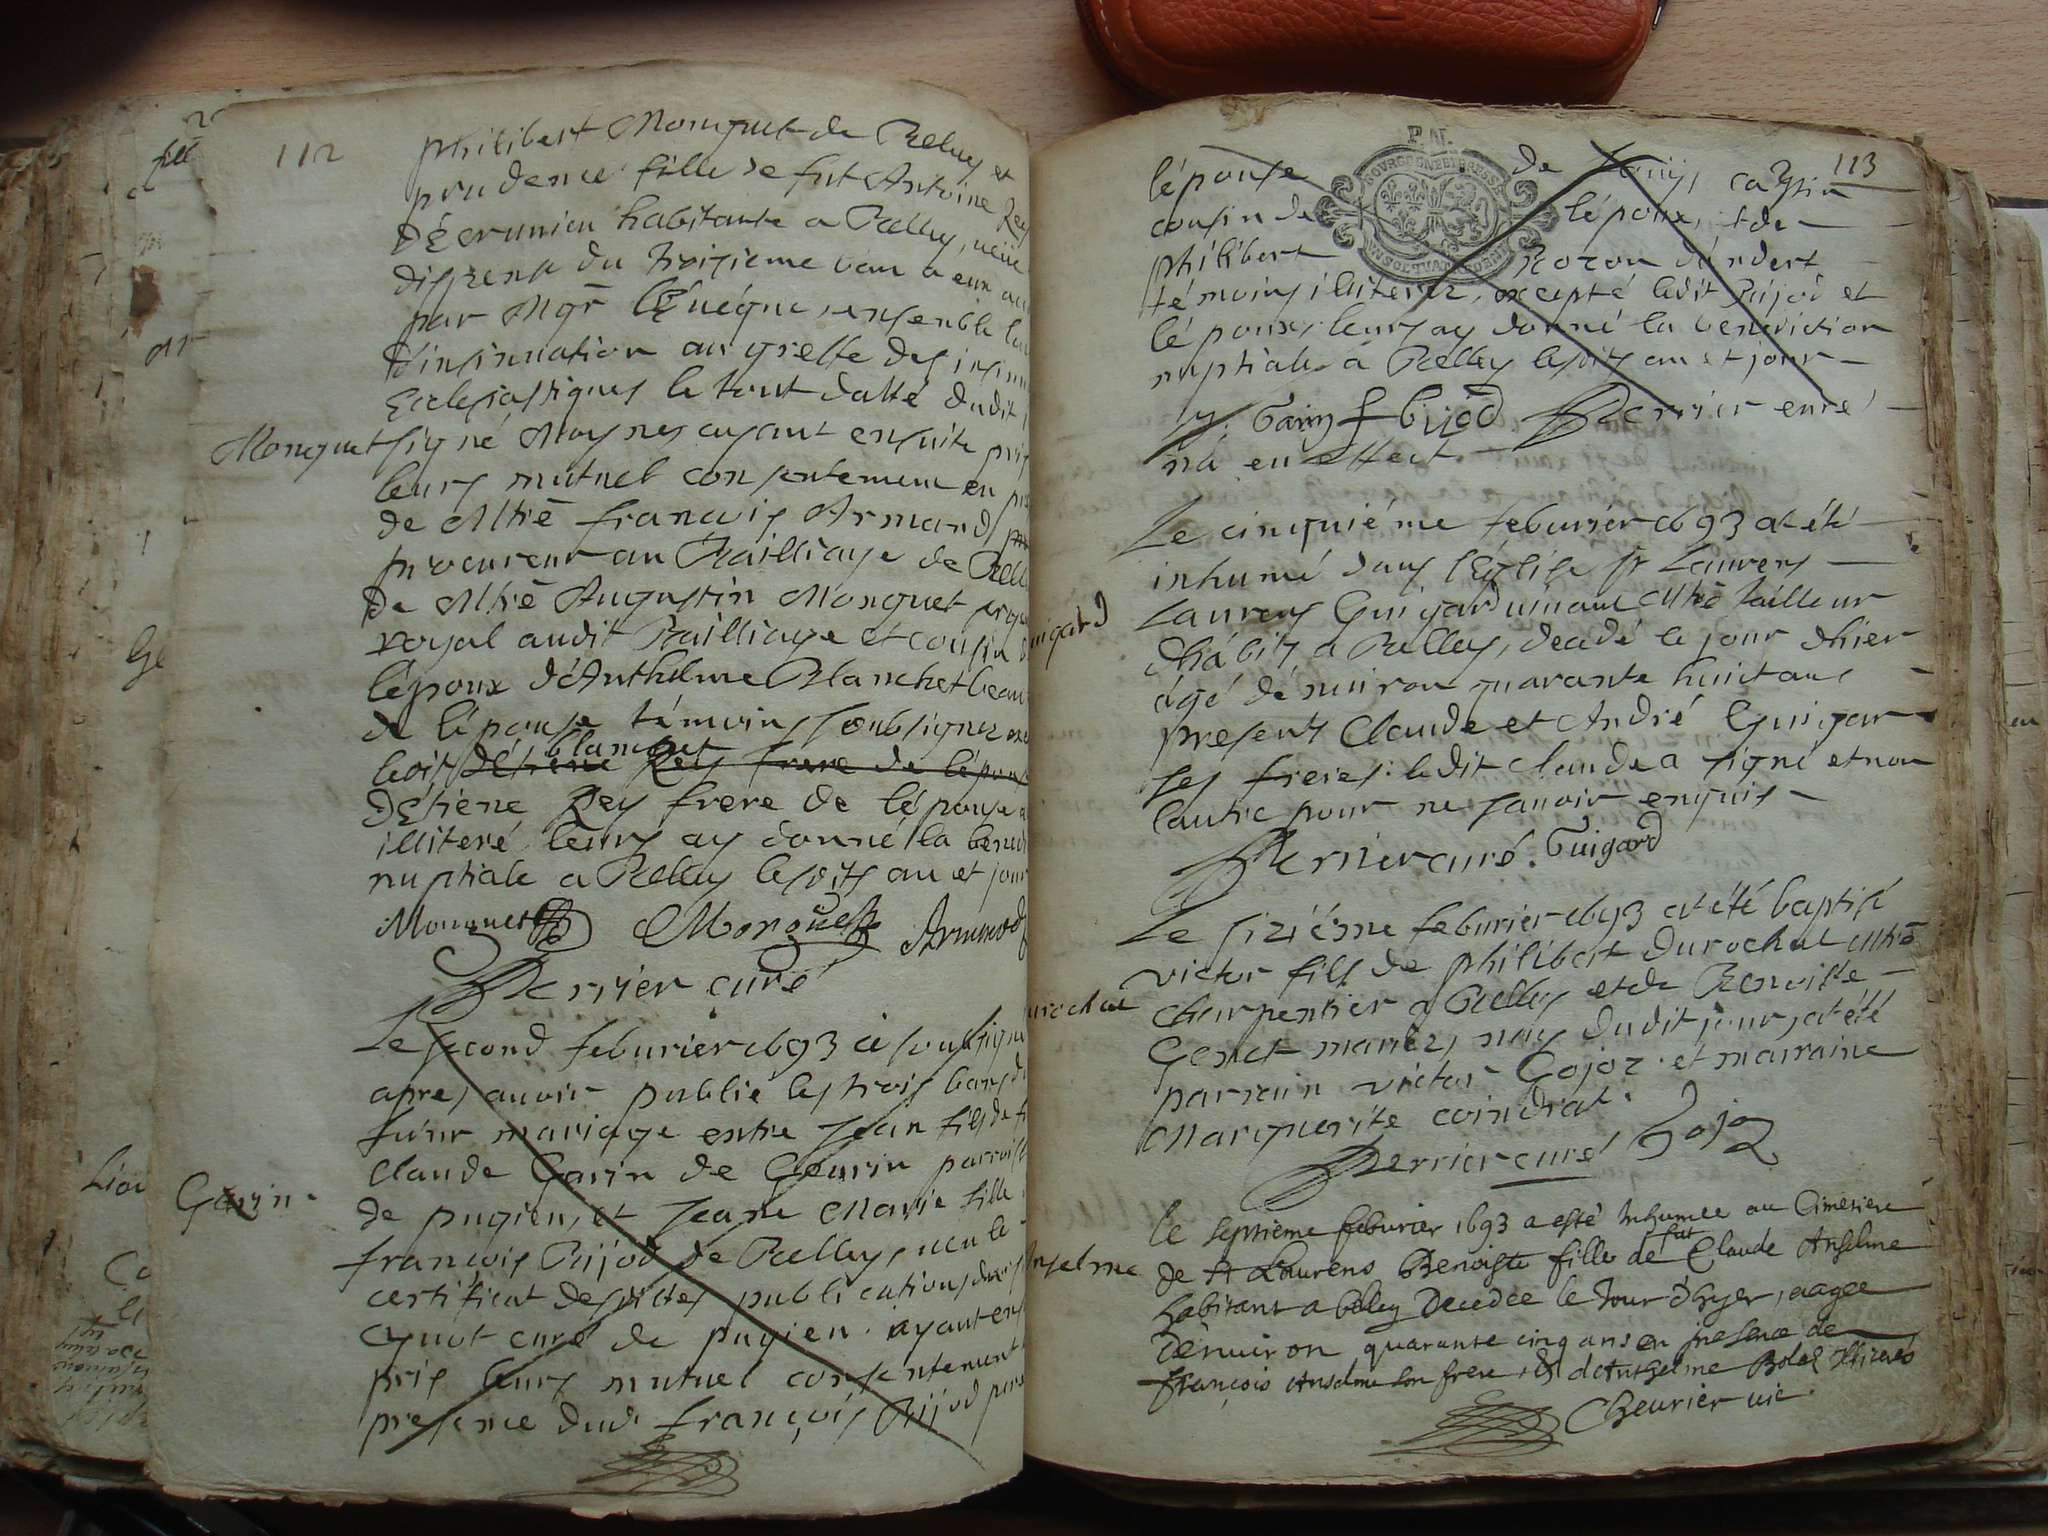 112
philibert Monguet de Belley et
prudence fille de fut Antoine Rey
habitante a Belley, veüe
dispense du troisieme ban a eux
par Mgr l'Evéque ensemble
d'insinnuation au greffe des
Ecclesiastiques le tout datté dudit
Monguet
signé Moynes ayant ensuite pris
leurs mutuel consentement en
de Mtre françois Armand,
procureur au Bailliage de
de Mtre Augustin Monguet
royal audit Bailliage et cousin
lépoux d'Anthelme Blanchet beau
de lépouse témoins soubsignez
blanchet
Rey frere de lépouse
d'Etiene Rey frere de lépouse
illiteré leurs ay donné la
nuptiale a Belley lesdits an et jour
Monguet Monguet Armand
Perrier curé
Le second feburier 1693
apres auoir publié les trois bans
futur mariage entre Jean fils de
Claude Garin de parroisse
Garin
de pugieu, et Jeane Marie fille
françois Bijod de Belley, ueu le
certificat desdittes publications
curé de pugieu. ayant
pris leurs mutuel consentement
presence dud. françois Bijod
113
P.M.
lépouse de
cousin de lépoux, et de
philibert d'Andert
témoins illiterez, excepté ledit Bijod et
lépoux, leurs ay donné la benediction
nuptiale a Belley lesdits an et jour
J. Garin f bijod Perrier curé
na eu effect
Le cinquiéme feburier 1693 at eté
inhumé dans l'Eglise st Laurens
Laurens Guigard uiuant Mtre tailleur
d'habits a Belley, decedé le jour d'hier
ágé denuiron quarante huict ans
presents Claude et André Guigar
ses freres: ledit claude a signé et non
lautre pour ne sauoir enquis
Perrier curé. Guigard
Le siziéme feburier 1693 at eté baptisé
victor fils de philibert Durochat Mtre
charpentier a Belley et de Benoiste
Genet mariez, nay dudit jour, at eté
parrain victor Gojoz. et marraine
Marguerite coindrat.
Perrier curé Gojoz
le septieme feburier 1693 a esté Inhumee au Cimetiere
Anselme
fut
de st Laurens Benoiste fille de Claude Anselme
habitant a belley Decedee le Jour d'hyer, aagee
denuiron quarante cinq ans en presence de
françois Anselme son frere & d'Anthelme
Cheurier uic